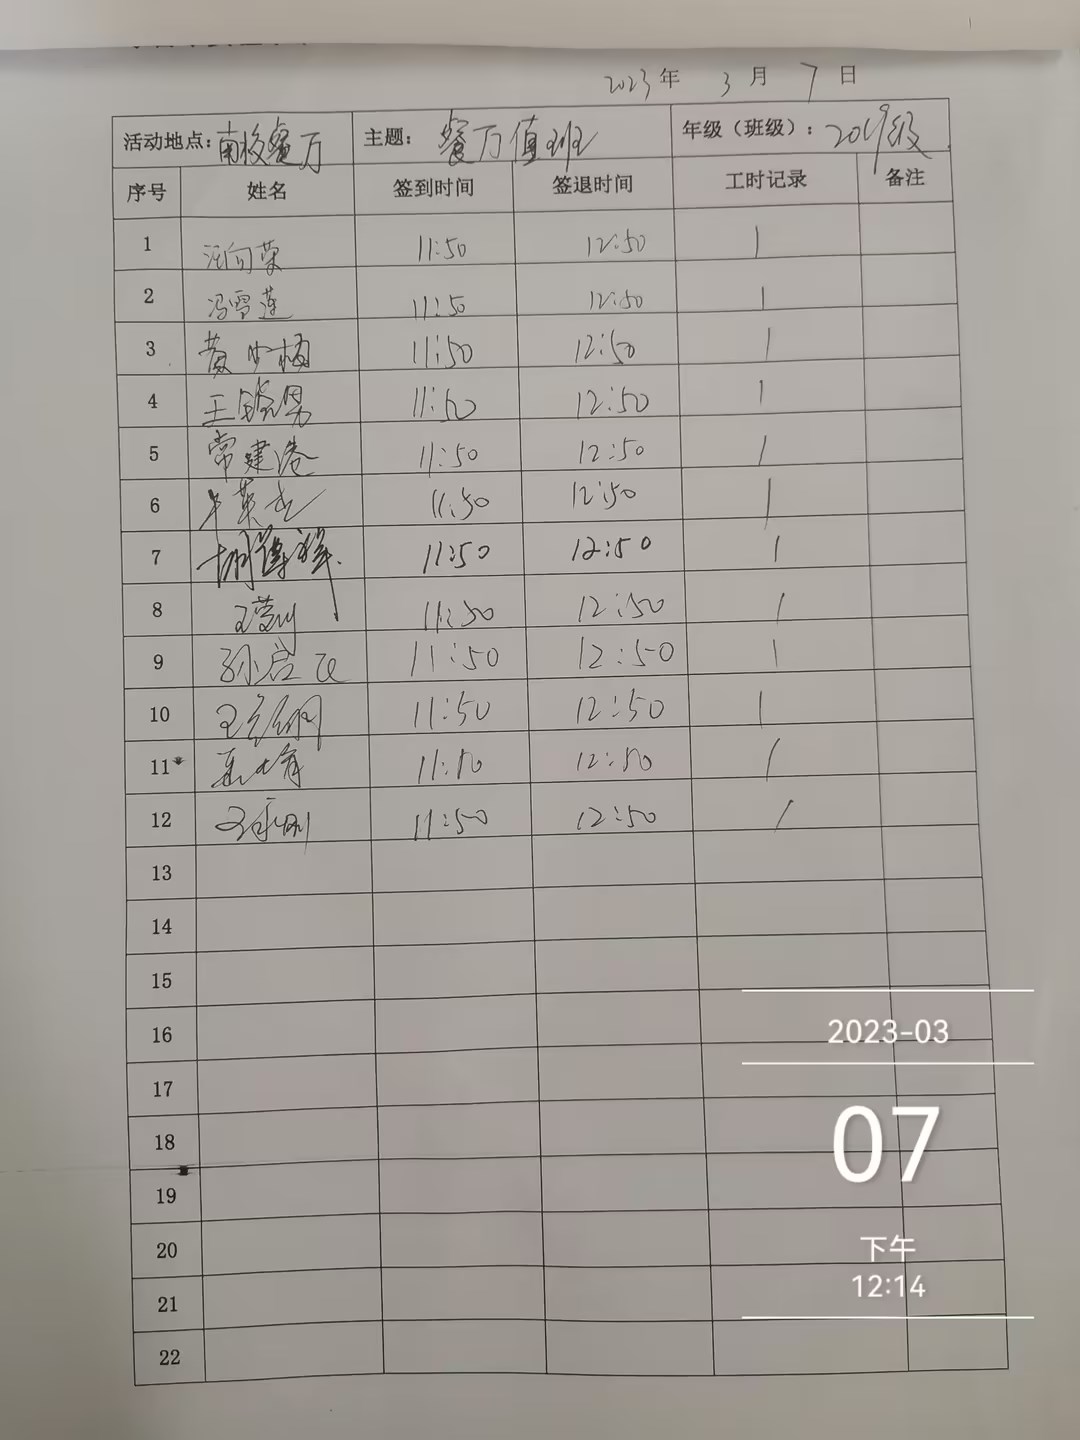 2023年 3月 7日
活动地点：南校餐厅 主题：餐厅值班 年级（班级）：2019级
序号 姓名 签到时间 签退时间 工时记录 备注
1 汪向荣 11:50 12:50 1
2 冯雪莲 11:50 12:50 1
3 黄少梅 11:50 12:50 1
4 王晓男 11:50 12:50 1
5 常建港 11:50 12:50 1
6 11:50 12:50 1
7 11:50 12:50 1
8 11:50 12:50 1
9 11:50 12:50 1
10 11:50 12:50 1
11 11:50 12:50 1
12 11:50 12:50 1
13
14
15
16
17
18
19
20
21
22
2023-03
07
下午
12:14